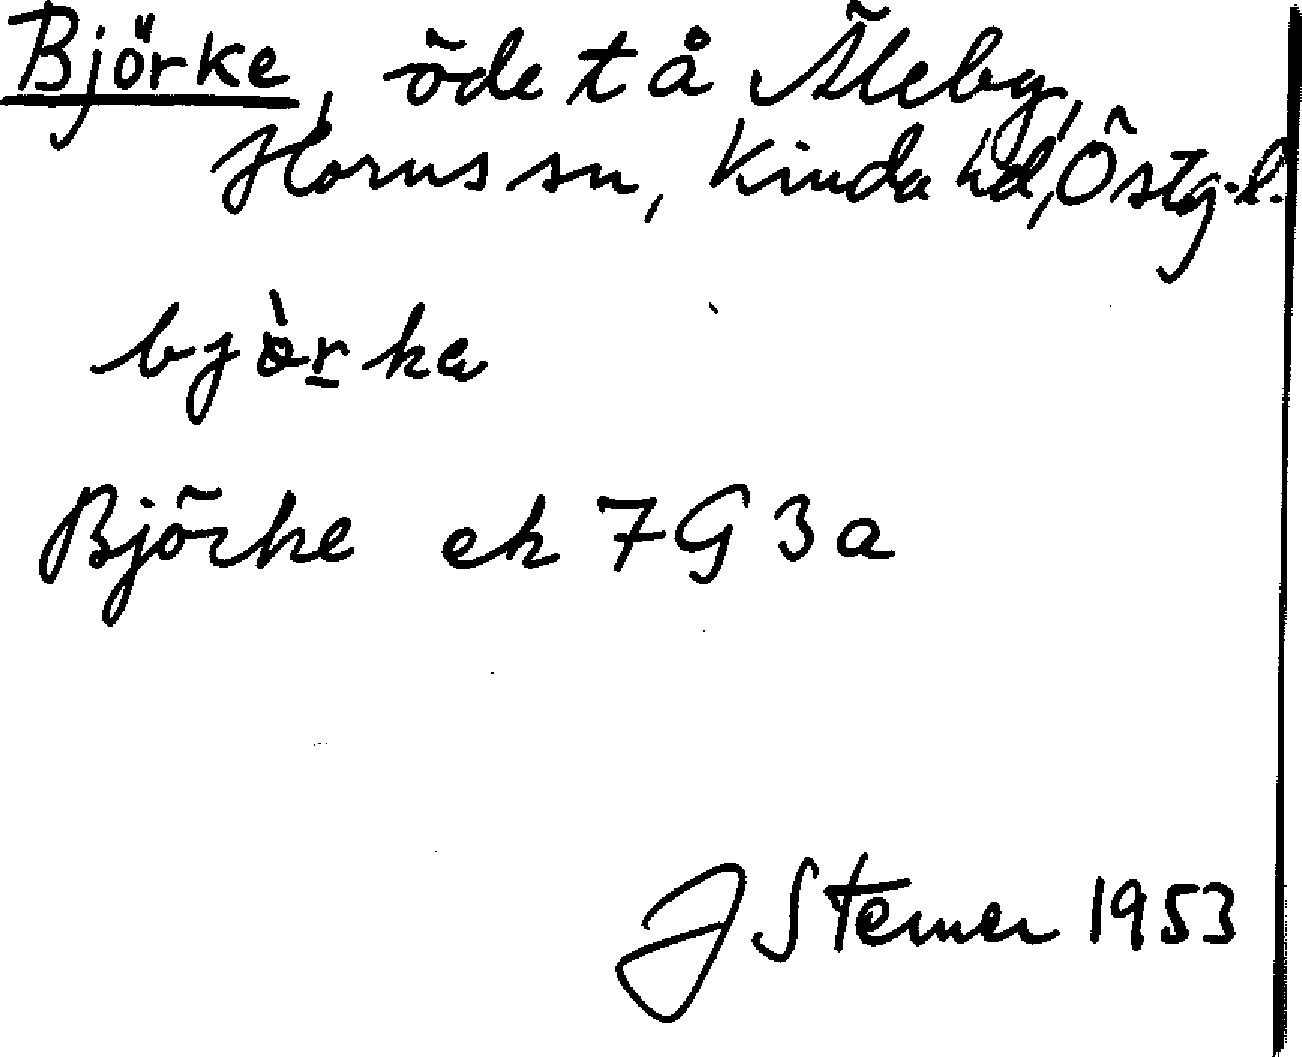 Björke, öde t å Äleby,
Horns sn, Kinda hd, Östg.l.
bjòrka
Björke ek 7G3a
J Sterner 1953